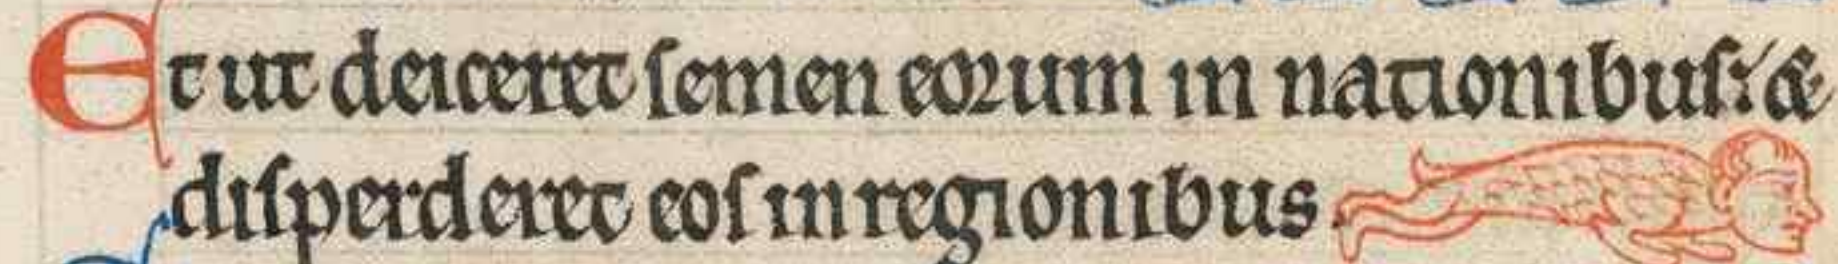 Et ut deiceret semen eorum in nationibus: &
disperderet eos in regionibus.